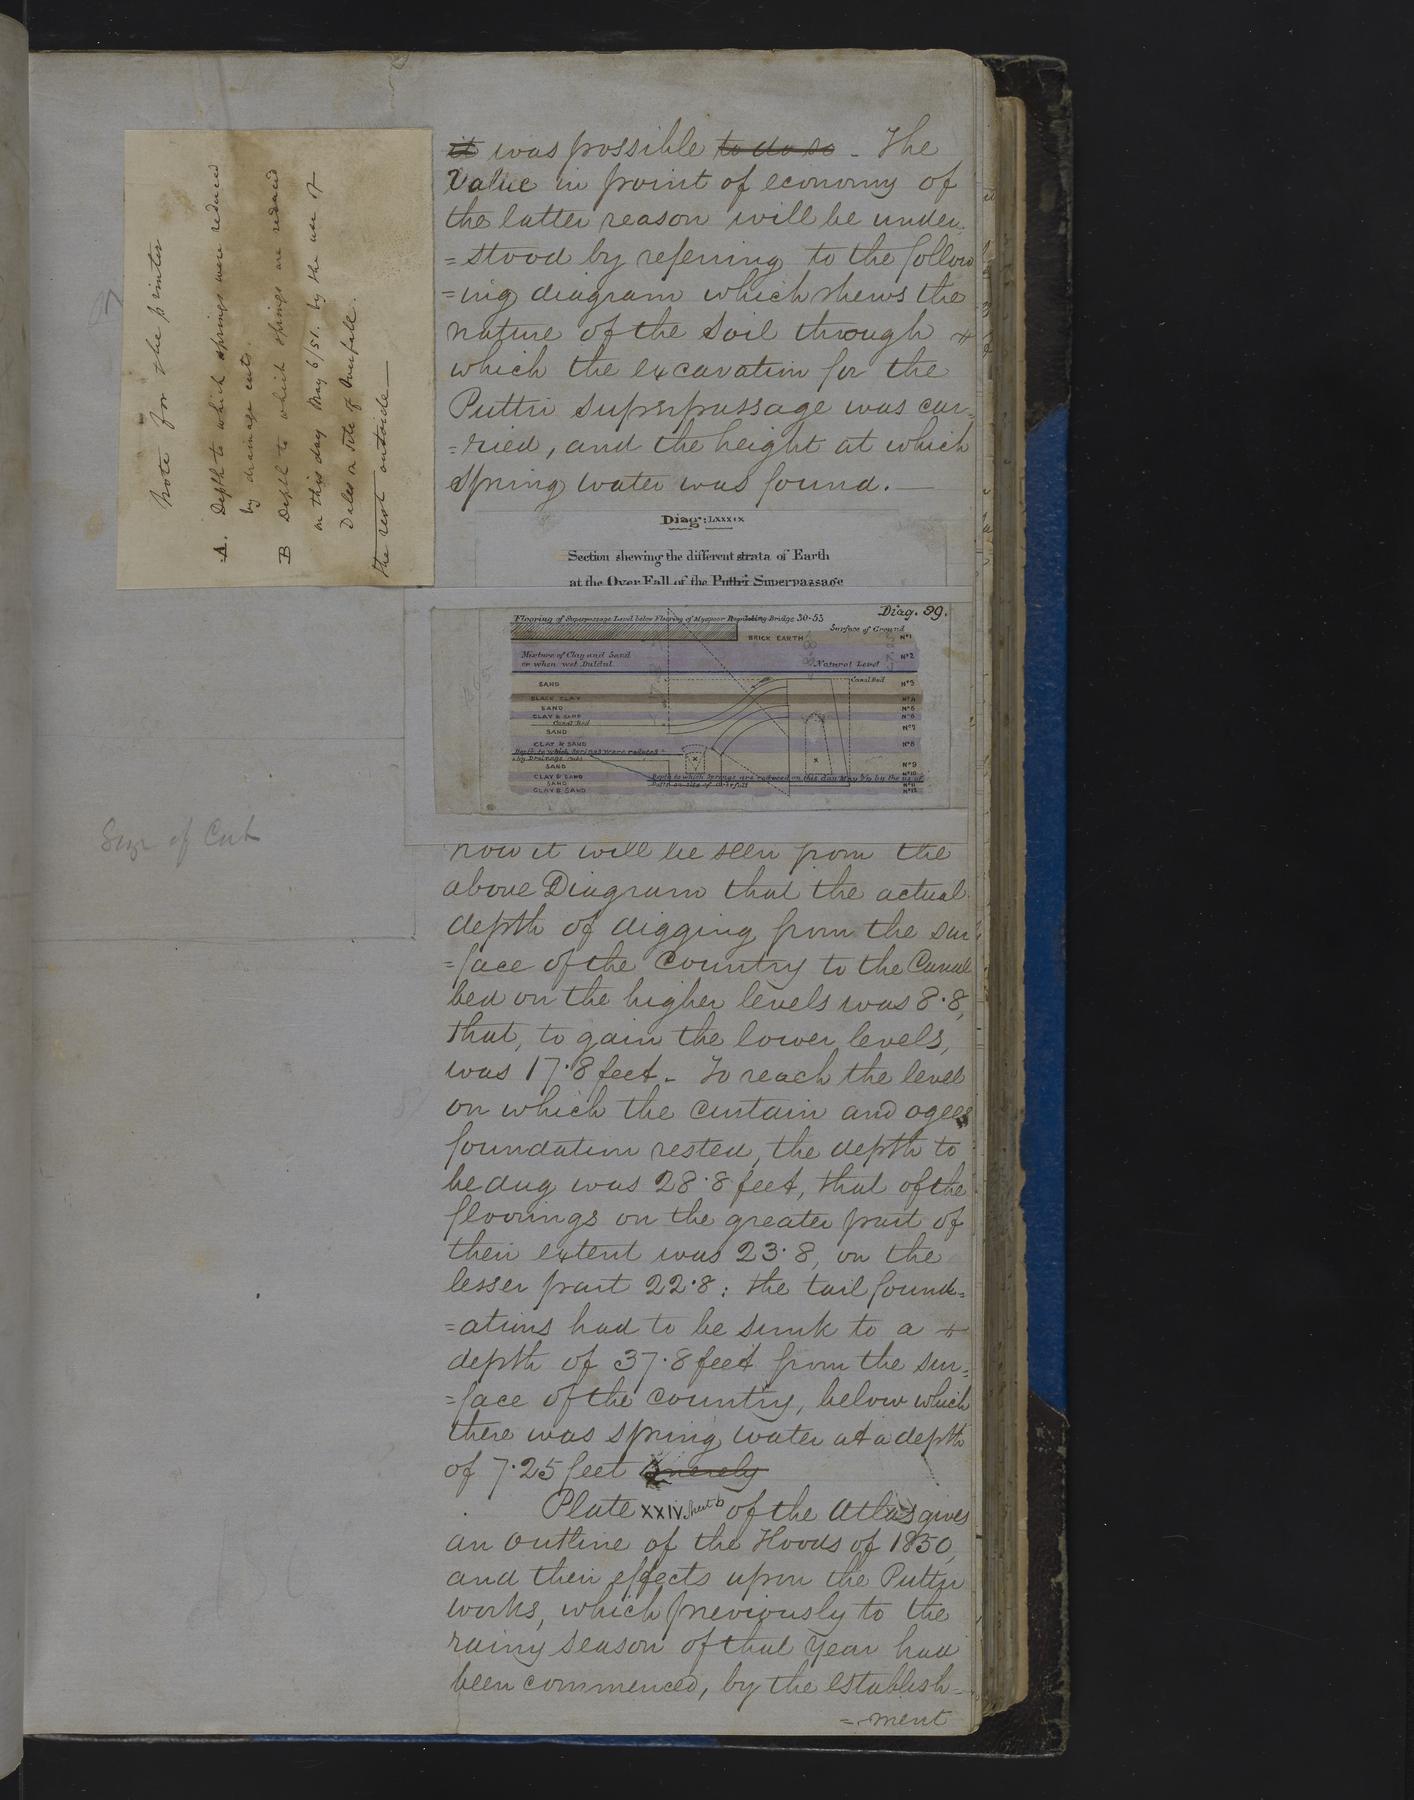 Note for the printer
A. Depth to which springs were reduced
by drainage cuts.
B Depth to which springs are reduced
on this day May 6/51. by the use of
Dales on site of Overfall.
the rest outside—
it was possible to do so - The
Value in point of economy of
the latter reason will be under-
=stood by referring to the follow
=ing diagram which shews the
nature of the soil through
which the excavation for the
Puttri Superpassage was car-
=ried, and the height at which
spring water was found.—
Diag: LXXXIX
Section shewing the different strata of Earth
at the Over Fall of the Puttri Superpassage
Diag. 89.
Flooring of Superpassage Level below Flooring of Myapoor Regulating Bridge 30-55
Surface of Ground
BRICK EARTH
Nº1
Mixture of Clay and Sand
or when wet Duldul
Natural Level
Nº2
SAND
Canal Bed
Nº3
BLACK CLAY
Nº4
SAND
Nº5
CLAY & SAND
Nº6
Canal Bed
SAND
Nº7
CLAY & SAND
Nº8
Depth to which Springs were reduced
by Drainage cuts
SAND
Nº9
CLAY & SAND
Nº10
Depth to which Springs are reduced on this day May by the use of
SAND
Nº11
on site of Overfall
CLAY & SAND
Nº12
Size of Cut
now it will be seen from the
above Diagram that the actual
depth of digging from the sur
=face of the Country to the Canal
bed on the higher levels was 8.8,
that, to gain the lower levels,
was 17.8 feet - To reach the level
on which the curtain and ogees
foundation rested, the depth to
be dug was 28.8 feet, that of the
floorings on the greater part of
their extent was 23.8, on the
lesser part 22.8: the tail found=
=ations had to be sunk to a
depth of 37.8 feet from the sur=
=face of the country, below which
there was spring water at a depth
of 7.25 feet merely
Plate XXIV Sheet 6 of the Atlas gives
an outline of the Floods of 1850,
and their effects upon the Puttri
works, which previously to the
rainy season of that Year had
been commenced, by the establish=
=ment